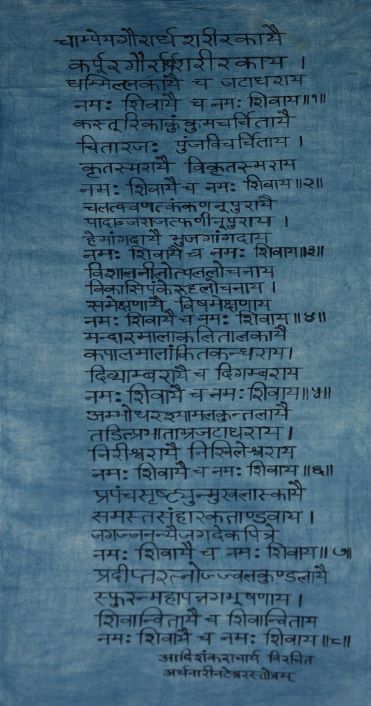 चाम्पेयगौरार्धशरीरकायै
कर्पूरगौरार्धशरीरकाय ।
धम्मिल्लकायै च जटाधराय
नमः शिवायै च नमः शिवाय ॥१॥
कस्तूरिकाकुंकुमचर्चितायै
चितारजः पुंजविचर्चिताय ।
कृतस्मरायै विकृतस्मराय
नमः शिवायै च नमः शिवाय ॥२॥
चलत्क्वणत्कंकणनूपुरायै
पादाब्जराजत्फणीनूपुराय ।
हेमांगदायै भुजगांगदाय
नमः शिवायै च नमः शिवाय ॥३॥
विशालनीलोत्पललोचनाय
विकासिपंकेरुहलोचनाय ।
समेक्षणायै विषमेक्षणाय
नमः शिवायै च नमः शिवाय ॥४॥
मन्दारमालाकुलितालकायै
कपालमालांकितकन्धराय ।
दिव्याम्बरायै च दिगम्बराय
नमः शिवायै च नमः शिवाय ॥५॥
अम्भोधरश्यामलकुन्तलायै
तडित्प्रभाताम्रजटाधराय ।
निरीश्वरायै निखिलेश्वराय
नमः शिवायै च नमः शिवाय ॥६॥
प्रपंचसृष्ट्युन्मुखलास्कायै
समस्तसंहारकताण्डवाय ।
जगज्जनन्यै जगदेकपित्रे
नमः शिवायै च नमः शिवाय ॥७॥
प्रदीप्तरत्नोज्ज्वलकुण्डलायै
स्फुरन्महापन्नगभूषणाय ।
शिवान्वितायै च शिवान्विताय
नमः शिवायै च नमः शिवाय ॥८॥
आदिशंकराचार्य विरचित
अर्धनारीनटेश्वरस्तोत्रम्